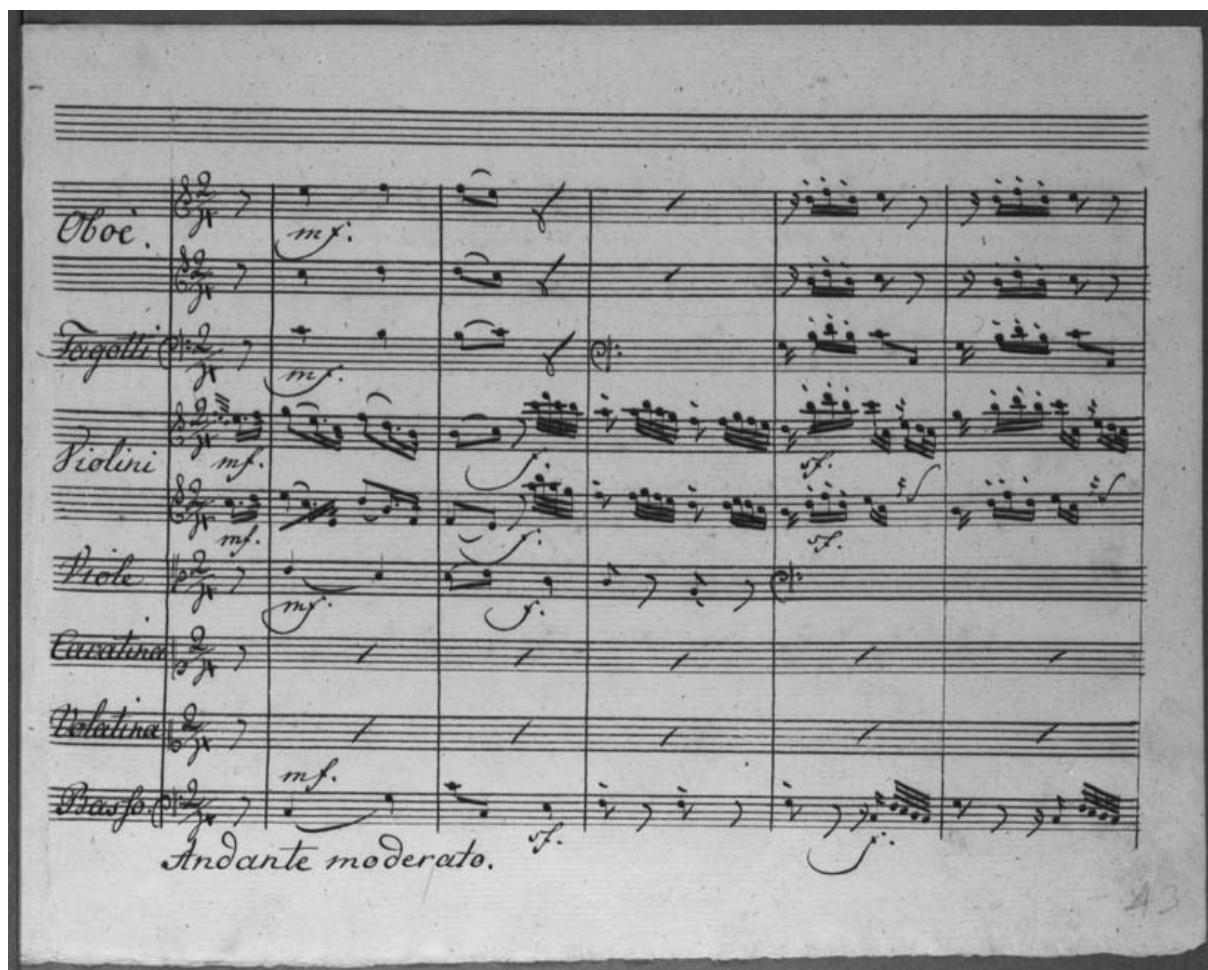 Oboè.
mf.
Fagotti
mf.
Violini
mf.
f.
sf.
mf.
f.
sf.
Viole
mf.
f.
Cavatina
Volatina
mf.
Basso.
sf.
f.
Andante moderato.
43